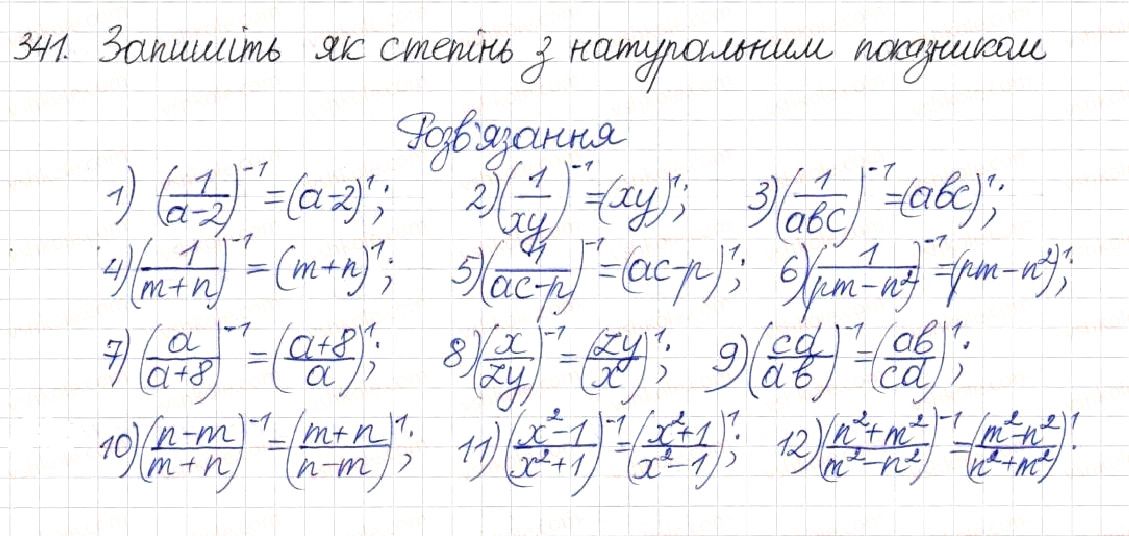 341. Запишіть як степінь з натуральним показником
Розв'язання
1) (1/(a-2))^-1 = (a-2)^1; 2) (1/xy)^-1 = (xy)^1; 3) (1/abc)^-1 = (abc)^1;
4) (1/(m+n))^-1 = (m+n)^1; 5) (1/(ac-p))^-1 = (ac-p)^1; 6) (1/(pm-n²))^-1 = (pm-n²)^1;
7) (a/(a+8))^-1 = ((a+8)/a)^1; 8) (x/zy)^-1 = (zy/x)^1; 9) (cd/ab)^-1 = (ab/cd)^1;
10) ((n-m)/(m+n))^-1 = ((m+n)/(n-m))^1; 11) ((x²-1)/(x²+1))^-1 = ((x²+1)/(x²-1))^1; 12) ((n²+m²)/(m²-n²))^-1 = ((m²-n²)/(n²+m²))^1.